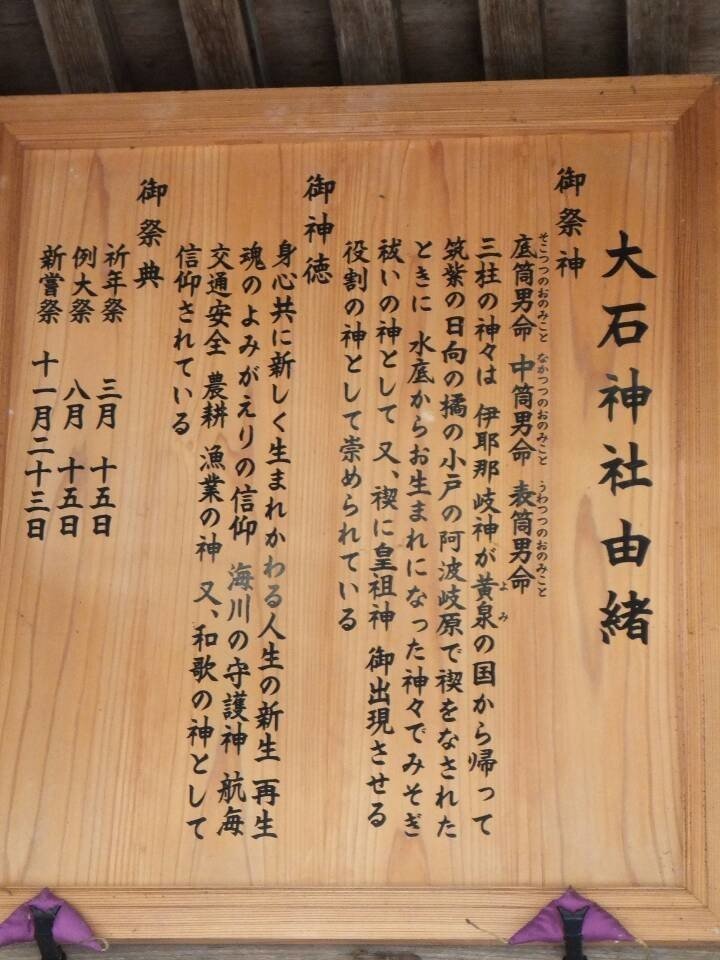 大石神社由緒
御祭神
底筒男命 中筒男命 表筒男命
そこつつのおのみこと なかつつのおのみこと うわつつのおのみこと
三柱の神々は 伊耶那岐神が黄泉の国から帰って
よみ
筑紫の日向の橘の小戸の阿波岐原で禊をなされた
ときに 水底からお生まれになった神々でみそぎ
祓いの神として 又、禊に皇祖神 御出現させる
役割の神として崇められている
御神徳
身心共に新しく生まれかわる人生の新生 再生
魂のよみがえりの信仰 海川の守護神 航海
交通安全 農耕 漁業の神 又、和歌の神として
信仰されている
御祭典
祈年祭 三月 十五日
例大祭 八月 十五日
新嘗祭 十一月二十三日